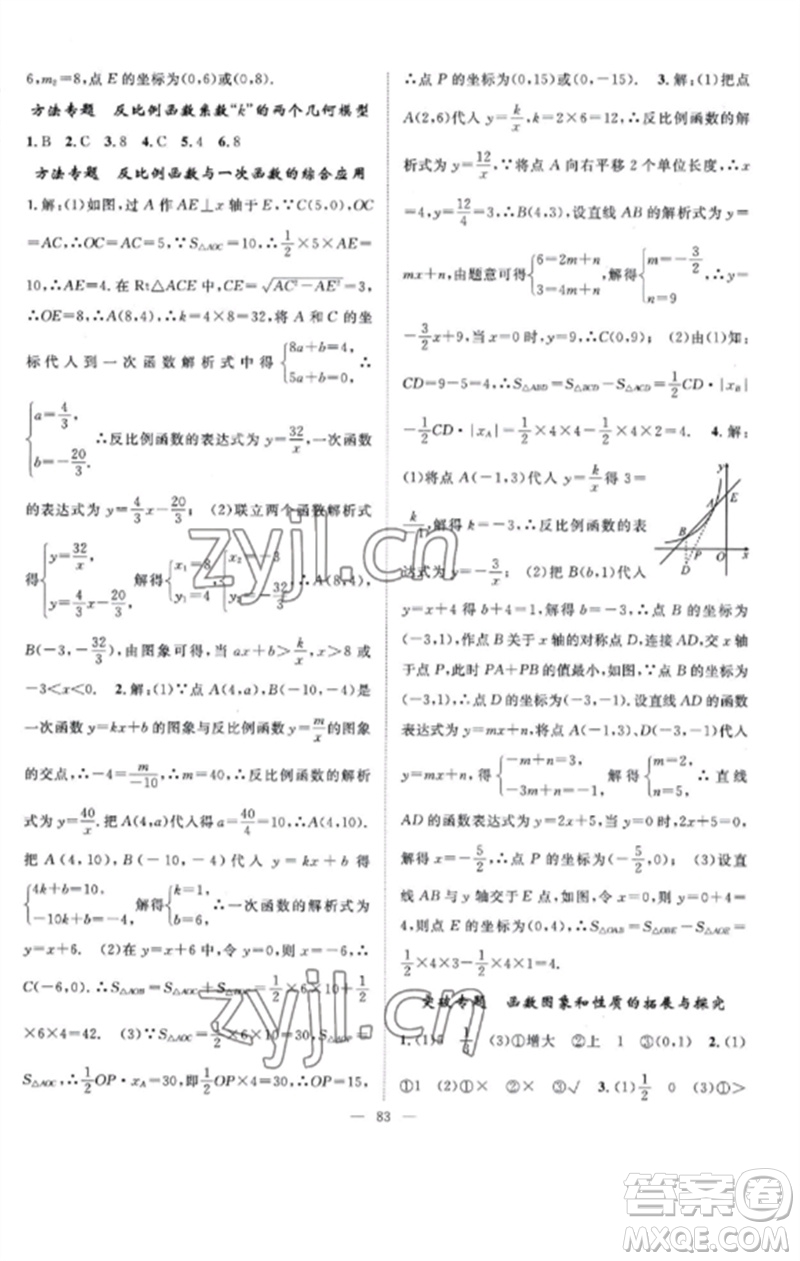 6,m₂=8,点 E 的坐标为(0,6)或(0,8).
方法专题　反比例函数系数“k”的两个几何模型
1.B　2.C　3.8　4.C　5.4　6.8
方法专题　反比例函数与一次函数的综合应用
1.解:(1)如图,过 A 作 AE⊥x 轴于 E,∵C(5,0),OC
=AC,∴OC=AC=5.∵S△AOC=10,∴1/2×5×AE=
10,∴AE=4.在 Rt△ACE 中,CE=√(AC²−AE²)=3,
∴OE=8,∴A(8,4),∴k=4×8=32,将 A 和 C 的坐
标代人到一次函数解析式中得{8a+b=4, 5a+b=0, ∴
{a=4/3, b=−20/3. ∴反比例函数的表达式为 y=32/x,一次函数
的表达式为 y=4/3x−20/3; (2)联立两个函数解析式
得{y=32/x, y=4/3x−20/3, 解得{x₁=8 y₁=4 {x₂=−3 ∴A(8,4),
B(−3,−32/3). 由图象可得,当 ax+b>k/x,x>8 或
−3<x<0.　2.解:(1)∵点 A(4,a),点 B(−10,−4)是
一次函数 y=kx+b 的图象与反比例函数 y=m/x的图象
的交点,∴−4=m/−10,∴m=40,∴反比例函数的解析
式为 y=40/x.把 A(4,a)代人得 a=40/4=10,∴A(4,10).
把 A(4,10),B(−10,−4)代人 y=kx+b 得
{4k+b=10, −10k+b=−4, 解得{k=1, b=6. ∴一次函数的解析式为
y=x+6. (2)在 y=x+6 中,令 y=0,则 x=−6,∴
C(−6,0),∴S△AOB=S△AOC+S△BOC=1/2×6×10+1/2
×6×4=42. (3)∵S△AOC=1/2×6×10=30,S△AOP=
S△AOC,∴1/2OP·xA=30,即1/2OP×4=30,∴OP=15,
∴点 P 的坐标为(0,15)或(0,−15).　3.解:(1)把点
A(2,6)代人 y=k/x,k=2×6=12,∴反比例函数的解
析式为 y=12/x,∵将点 A 向右平移 2 个单位长度,∴x=
4,y=12/4=3,∴B(4,3),设直线 AB 的解析式为 y=
mx+n,由题意可得{6=2m+n 3=4m+n, 解得{m=−3/2 n=9 ∴y=
−3/2x+9,当 x=0 时,y=9,∴C(0,9); (2)由(1)知:
CD=9−5=4,∴S△ABD=S△BCD−S△ACD=1/2CD·|xB|
−1/2CD·|xA|=1/2×4×4−1/2×4×2=4.　4.解:
(1)将点 A(−1,3)代人 y=k/x得 3=
k/−1,解得 k=−3,∴反比例函数的表
达式为 y=−3/x; (2)把 B(b,1)代人
y=x+4 得 b+4=1,解得 b=−3,∴点 B 的坐标为
(−3,1),作点 B 关于 x 轴的对称点 D,连接 AD,交 x 轴
于点 P,此时 PA+PB 的值最小,如图,∵点 B 的坐标为
(−3,1),∴点 D 的坐标为(−3,−1),设直线 AD 的函数
表达式为 y=mx+n,将点 A(−1,3)、D(−3,−1)代人
y=mx+n,得{−m+n=3, −3m+n=−1, 解得{m=2, n=5, ∴直线
AD 的函数表达式为 y=2x+5,当 y=0 时,2x+5=0,
解得 x=−5/2,∴点 P 的坐标为(−5/2,0); (3)设直
线 AB 与 y 轴交于点 E,令 x=0,则 y=0+4=
4,则点 E 的坐标为(0,4),∴S△OAB=S△OBE−S△AOE=
1/2×4×3−1/2×4×1=4.
y A E B P O x D
突破专题　函数图象和性质的拓展与探究
1.(1)3　1/3　(3)①增大　②上　1　③(0,1)　2.(1)
①1　②①②　3.(1)1/2　0　(3)①>
— 83 —
zyjl.cn
zyjl.cn
答案卷
MXQE.COM